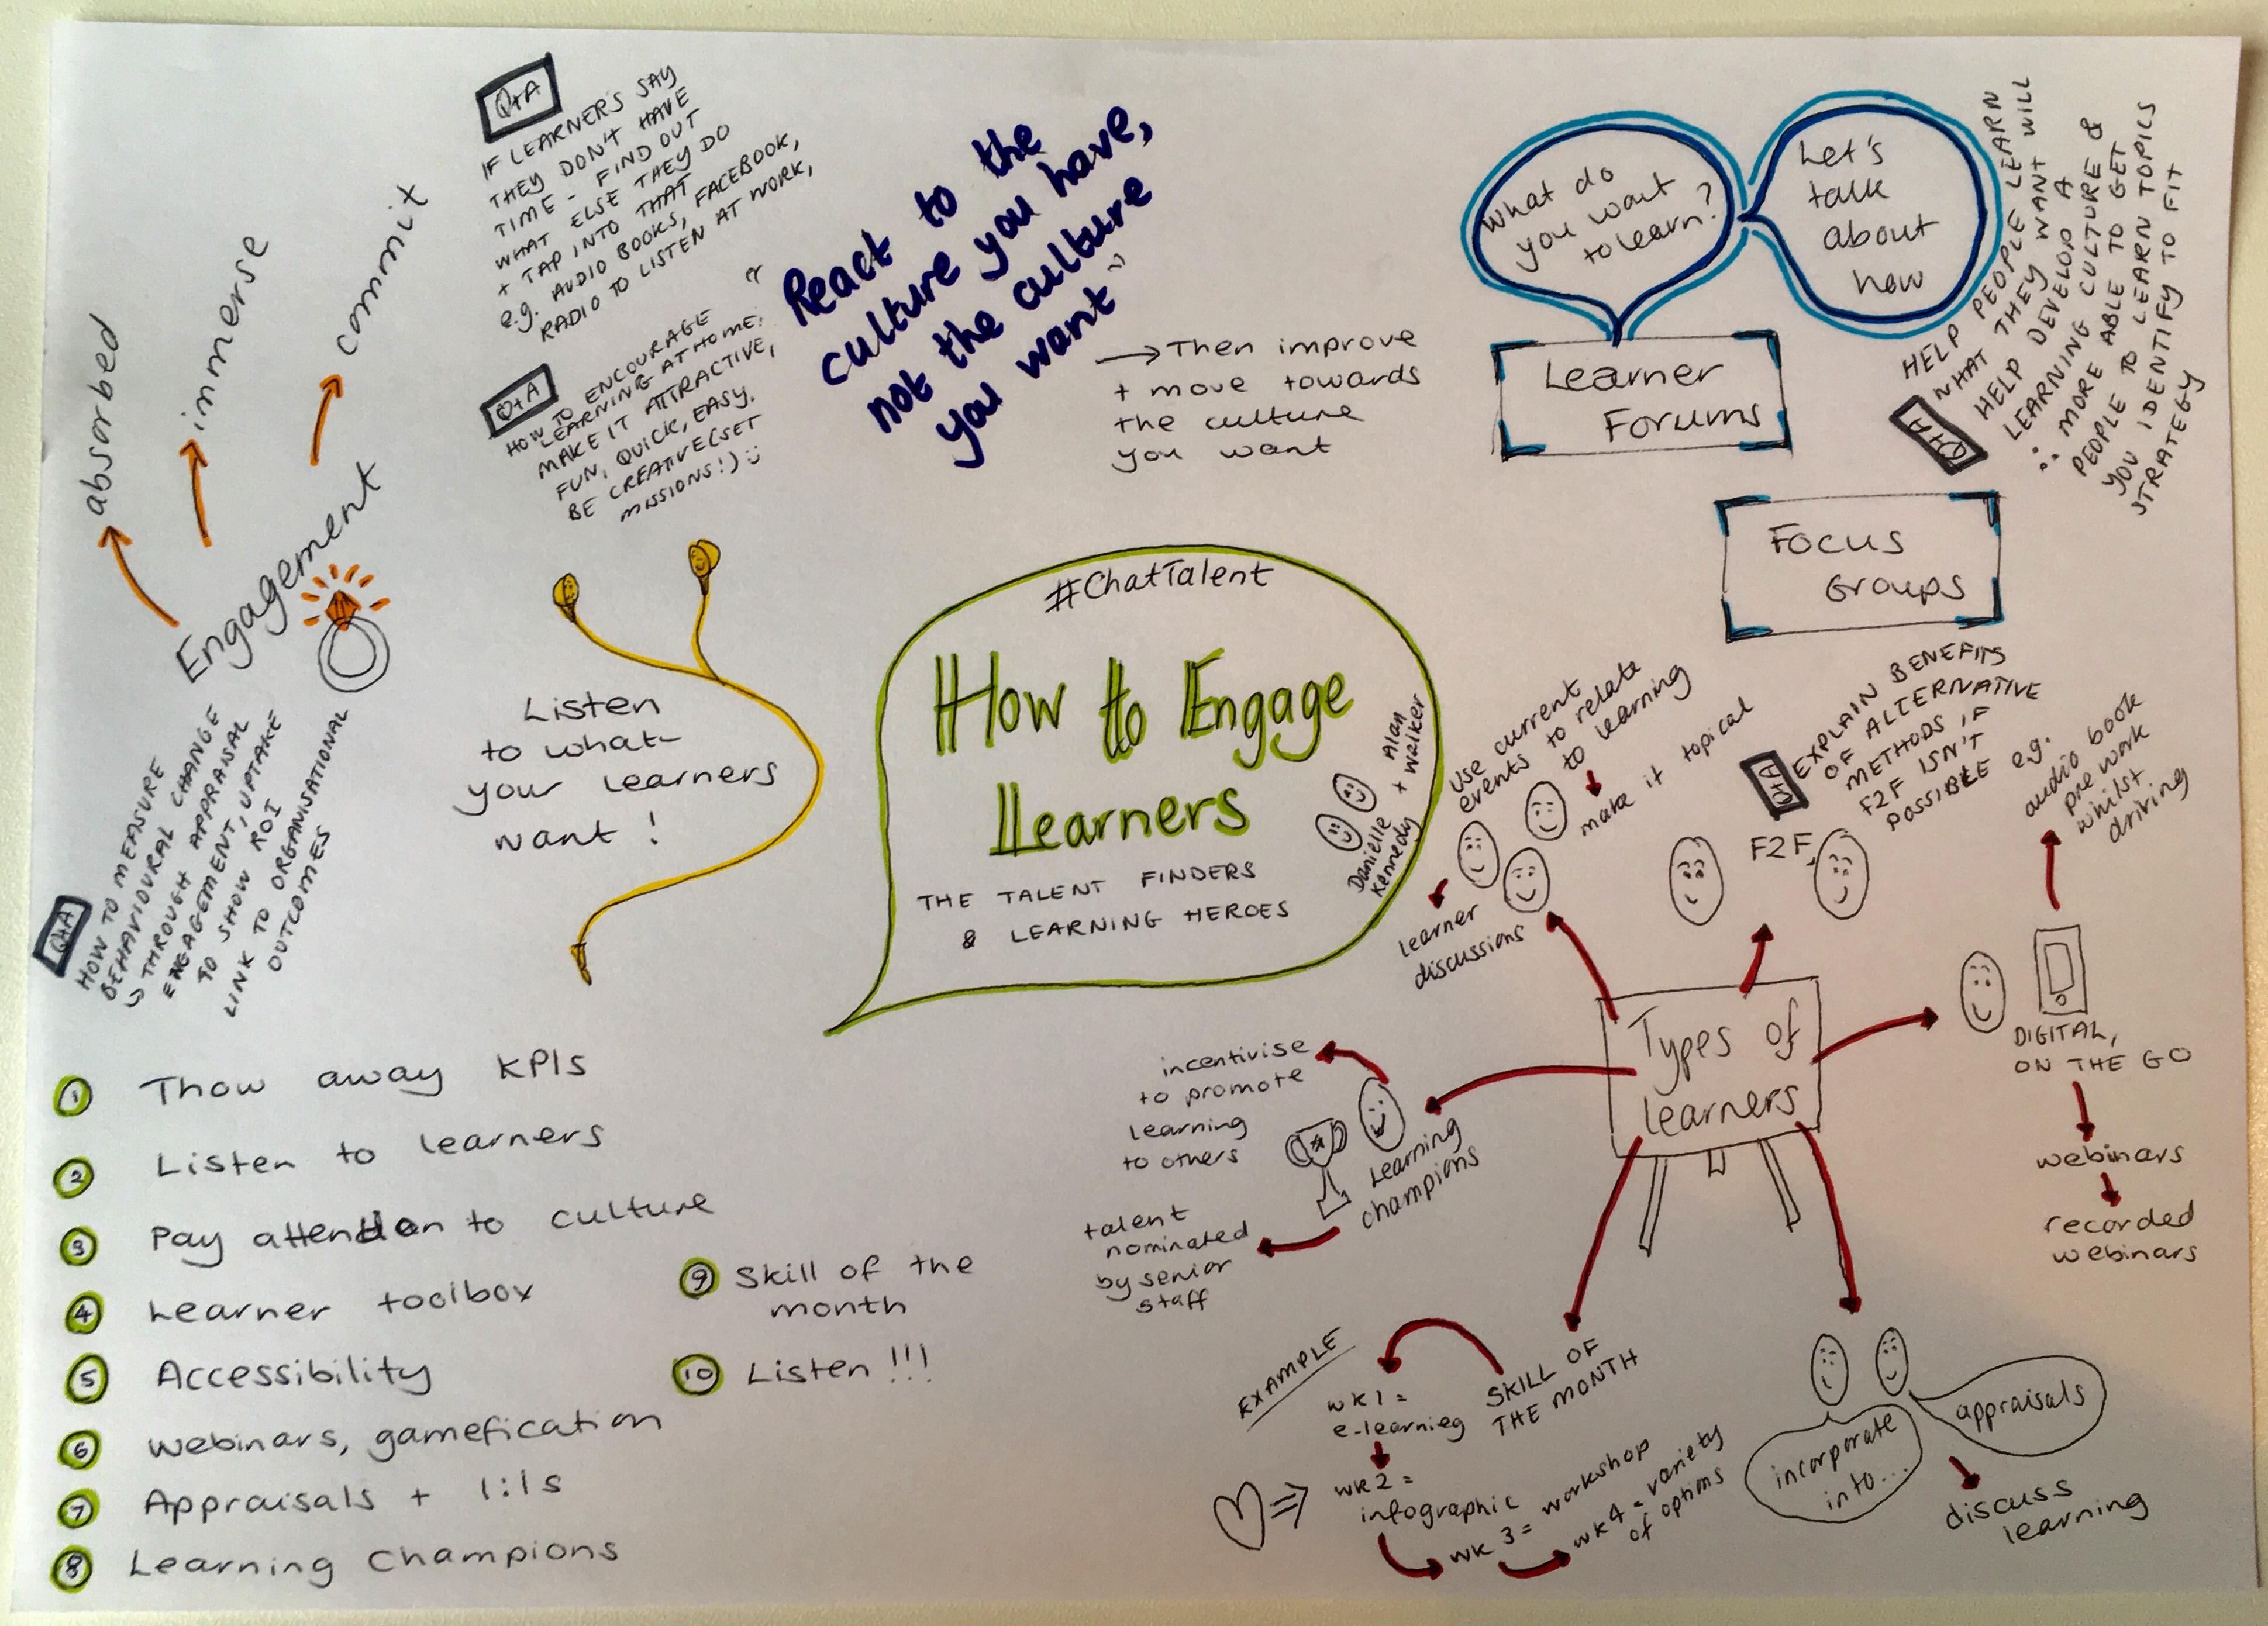 absorbed
immerse
commit
Engagement
Q+A
IF LEARNERS SAY
THEY DON'T HAVE
TIME - FIND OUT
WHAT ELSE THEY DO
+ TAP INTO THAT
e.g. AUDIO BOOKS, FACEBOOK,
RADIO TO LISTEN AT WORK,
Q+A
HOW TO ENCOURAGE
LEARNING AT HOME:
MAKE IT ATTRACTIVE,
FUN, QUICK, EASY,
BE CREATIVE (SET
MISSIONS!) :)
"React to the
culture you have,
not the culture
you want"
→ Then improve
+ move towards
the culture
you want
What do
you want
to learn?
Let's
talk
about
how
Learner
Forums
Q+A
HELP PEOPLE LEARN
WHAT THEY WANT WILL
HELP DEVELOP A
LEARNING CULTURE &
∴ MORE ABLE TO GET
PEOPLE TO LEARN TOPICS
YOU IDENTIFY TO FIT
STRATEGY
Focus
Groups
Q+A
HOW TO MEASURE
BEHAVIOURAL CHANGE
↳ THROUGH APPRAISAL
ENGAGEMENT, UPTAKE
TO SHOW ROI
LINK TO ORGANISATIONAL
OUTCOMES
Listen
to what
your learners
want!
#ChatTalent
How to Engage
Learners
THE TALENT FINDERS
& LEARNING HEROES
Danielle
Kennedy
+ Alan
Walker
Types of
Learners
use current
events to relate
to learning
make it topical
learner
discussions
F2F
Q+A
EXPLAIN BENEFITS
OF ALTERNATIVE
METHODS IF
F2F ISN'T
POSSIBLE e.g.
audio book
pre work
whilst
driving
DIGITAL,
ON THE GO
webinars
recorded
webinars
Learning
champions
incentivise
to promote
learning
to others
talent
nominated
by senior
staff
SKILL OF
THE MONTH
EXAMPLE
wk1 =
e-learnieg
wk2 =
infographic
wk 3 = workshop
wk4 = variety
of options
incorporate
into...
appraisals
discuss
learning
1 Thow away KPIs
2 Listen to learners
3 Pay attention to culture
4 Learner toolbox
5 Accessibility
6 Webinars, gamefication
7 Appraisals + 1:1s
8 Learning Champions
9 Skill of the
month
10 Listen!!!